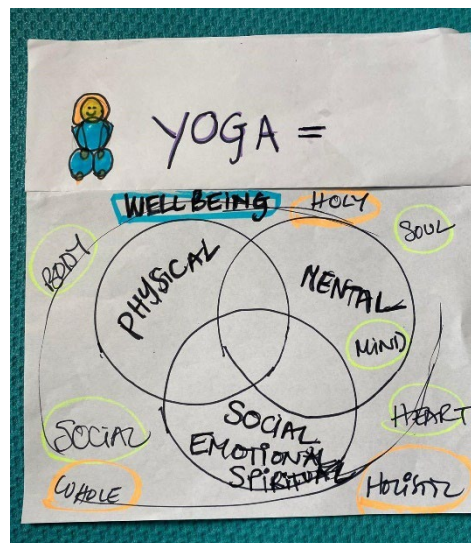 YOGA =
WELLBEING
HOLY
SOUL
BODY
PHYSICAL
MENTAL
MIND
SOCIAL
SOCIAL
EMOTIONAL
SPIRITUAL
HEART
WHOLE
HOLISTIC